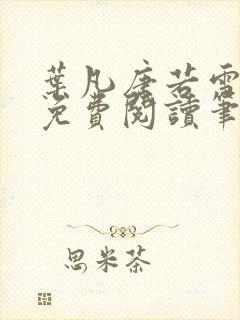 葉凡唐若雪
免費閱讀筆
思米茶